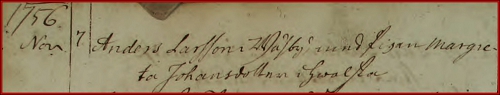 1756
Nov. 7 Anders Larsson i Wäsby und Pigan Margre-
ta Johansdotter i Hwalsta